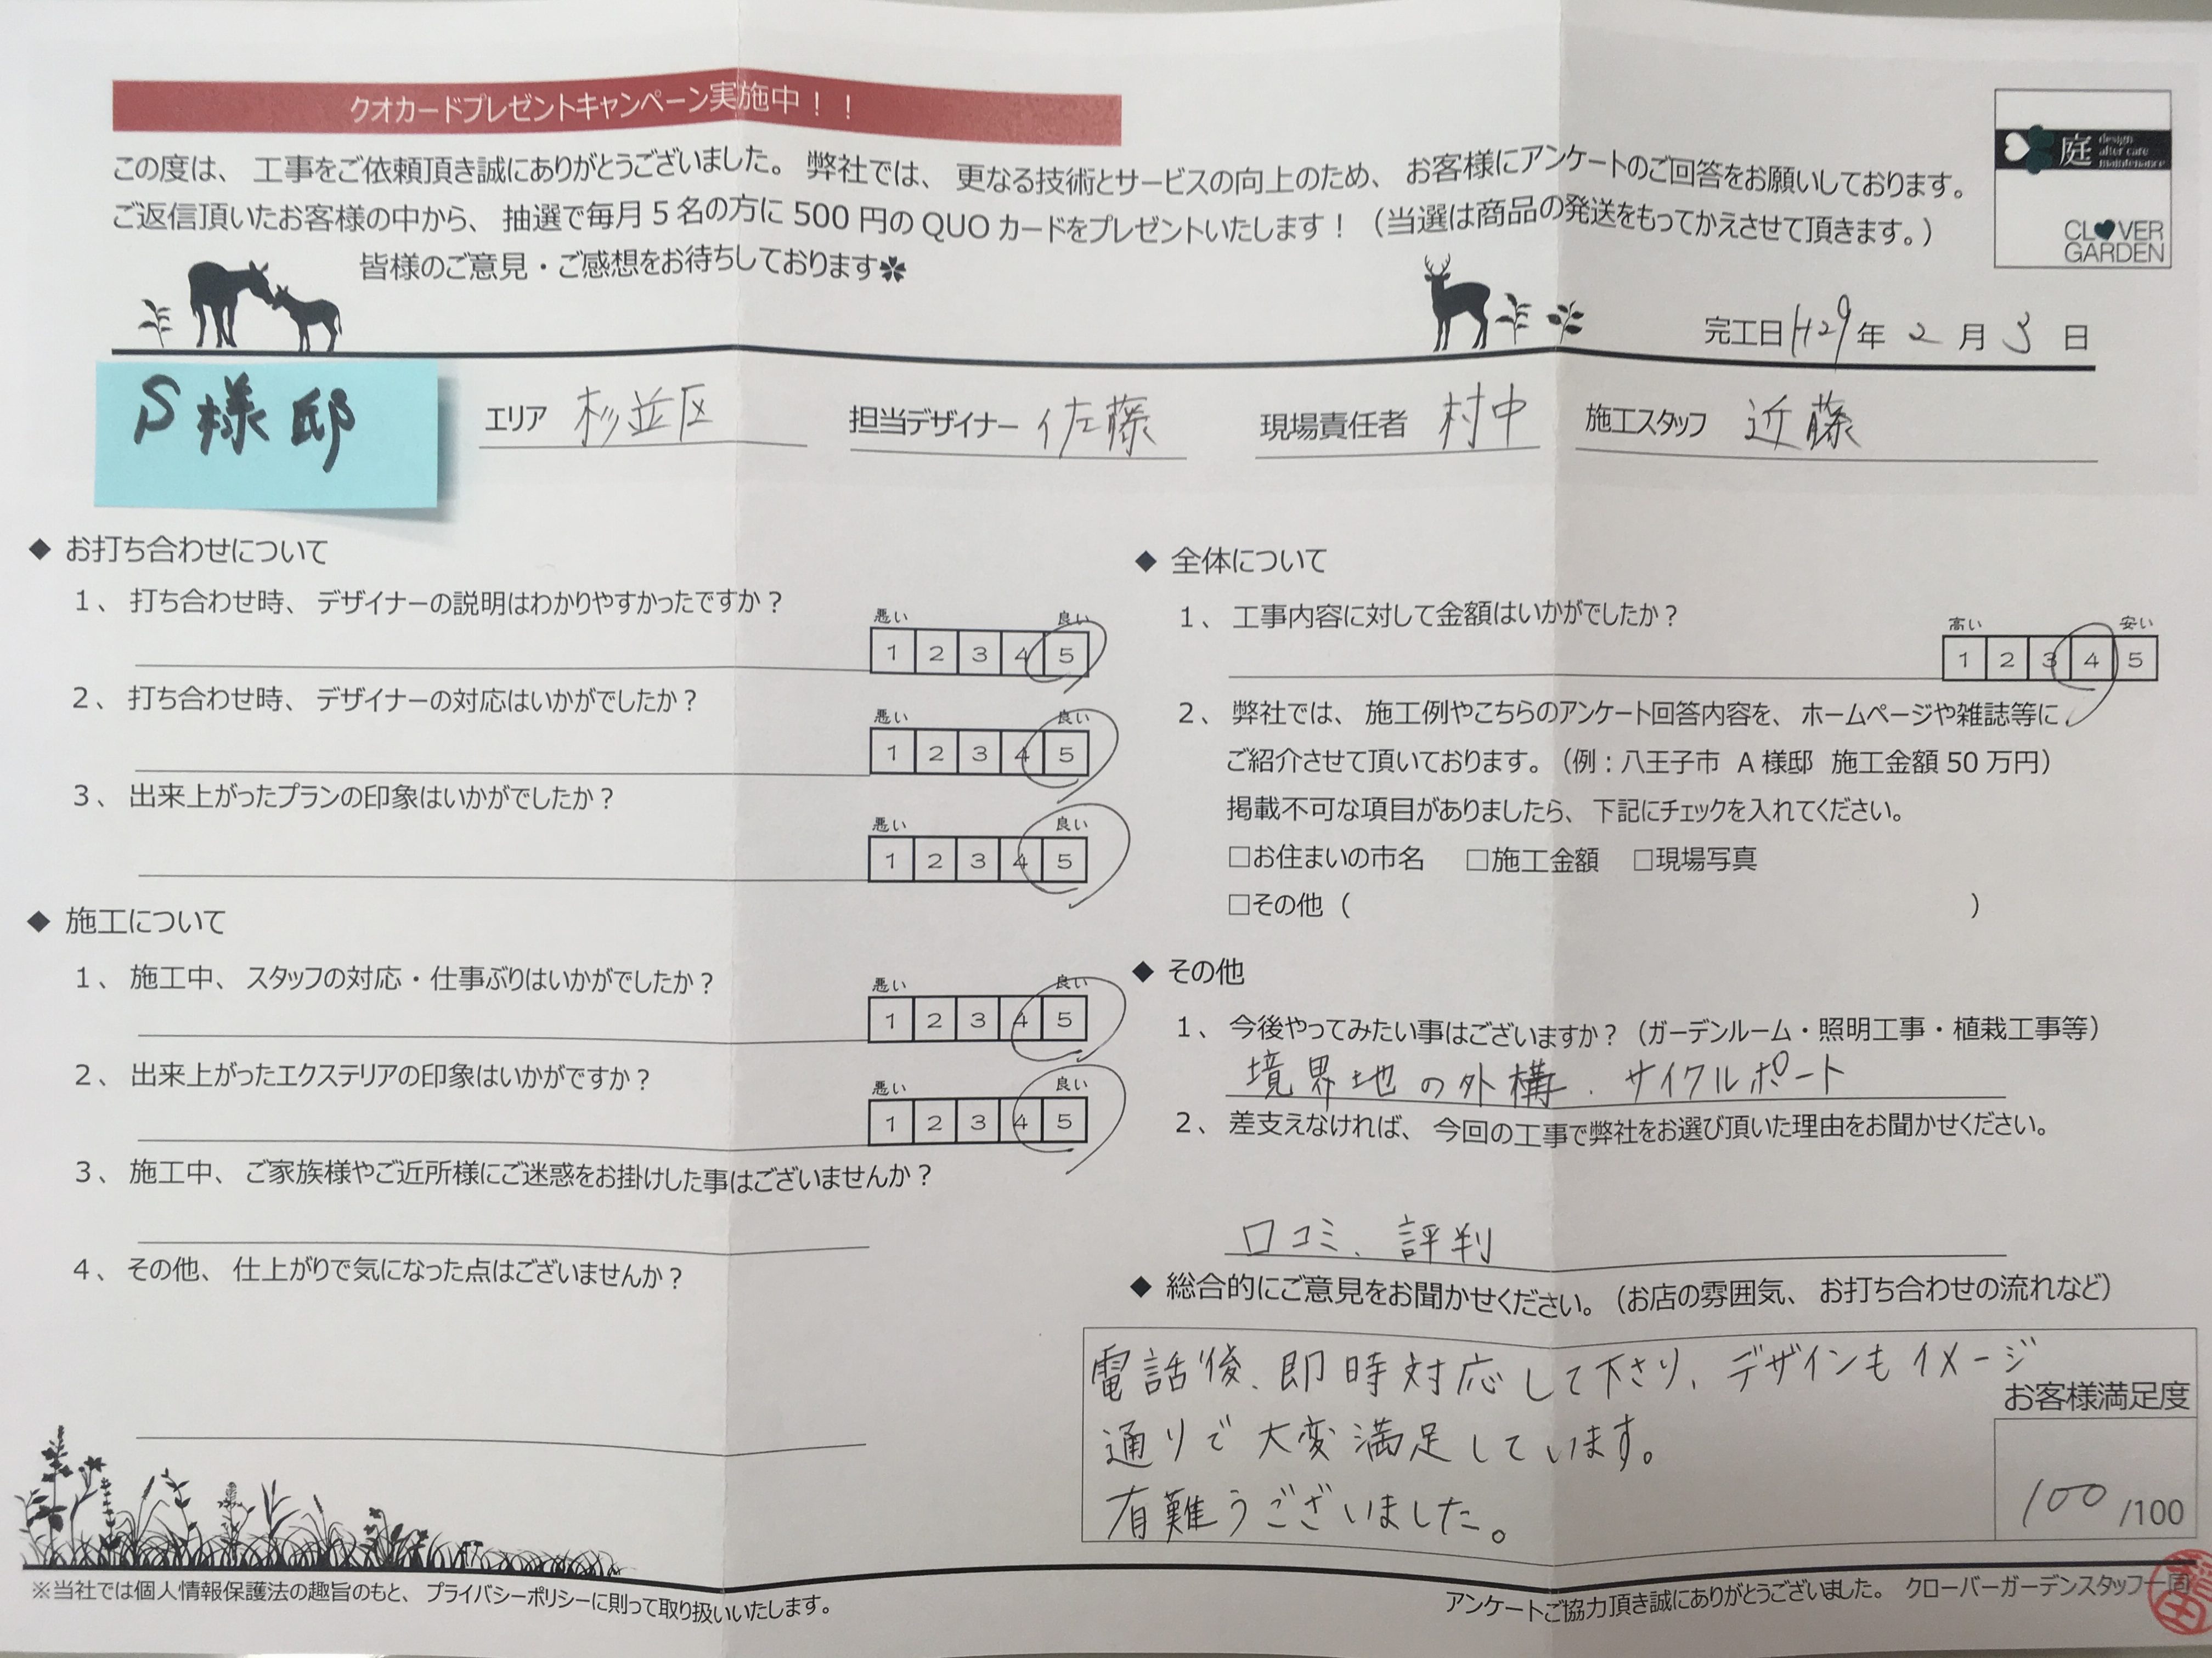 クオカードプレゼントキャンペーン実施中！！
庭 design after care maintenance
CLOVER GARDEN
この度は、工事をご依頼頂き誠にありがとうございました。弊社では、更なる技術とサービスの向上のため、お客様にアンケートのご回答をお願いしております。
ご返信頂いたお客様の中から、抽選で毎月5名の方に500円のQUOカードをプレゼントいたします！（当選は商品の発送をもってかえさせて頂きます。）
皆様のご意見・ご感想をお待ちしております
完工日 H29年 2月 3日
S様邸 エリア 杉並区 担当デザイナー 佐藤 現場責任者 村中 施工スタッフ 近藤
◆ お打ち合わせについて
1、打ち合わせ時、デザイナーの説明はわかりやすかったですか？
悪い 良い
1 2 3 4 5
2、打ち合わせ時、デザイナーの対応はいかがでしたか？
悪い 良い
1 2 3 4 5
3、出来上がったプランの印象はいかがでしたか？
悪い 良い
1 2 3 4 5
◆ 施工について
1、施工中、スタッフの対応・仕事ぶりはいかがでしたか？
悪い 良い
1 2 3 4 5
2、出来上がったエクステリアの印象はいかがですか？
悪い 良い
1 2 3 4 5
3、施工中、ご家族様やご近所様にご迷惑をお掛けした事はございませんか？
4、その他、仕上がりで気になった点はございませんか？
◆ 全体について
1、工事内容に対して金額はいかがでしたか？
高い 安い
1 2 3 4 5
2、弊社では、施工例やこちらのアンケート回答内容を、ホームページや雑誌等に
ご紹介させて頂いております。（例：八王子市 A様邸 施工金額50万円）
掲載不可な項目がありましたら、下記にチェックを入れてください。
□お住まいの市名 □施工金額 □現場写真
□その他（ ）
◆ その他
1、今後やってみたい事はございますか？（ガーデンルーム・照明工事・植栽工事等）
境界地の外構．サイクルポート
2、差支えなければ、今回の工事で弊社をお選び頂いた理由をお聞かせください。
口コミ、評判
◆ 総合的にご意見をお聞かせください。（お店の雰囲気、お打ち合わせの流れなど）
電話後、即時対応して下さり、デザインもイメージ
通りで大変満足しています。
有難うございました。
お客様満足度
100/100
※当社では個人情報保護法の趣旨のもと、プライバシーポリシーに則って取り扱いいたします。
アンケートご協力頂き誠にありがとうございました。 クローバーガーデンスタッフ一同